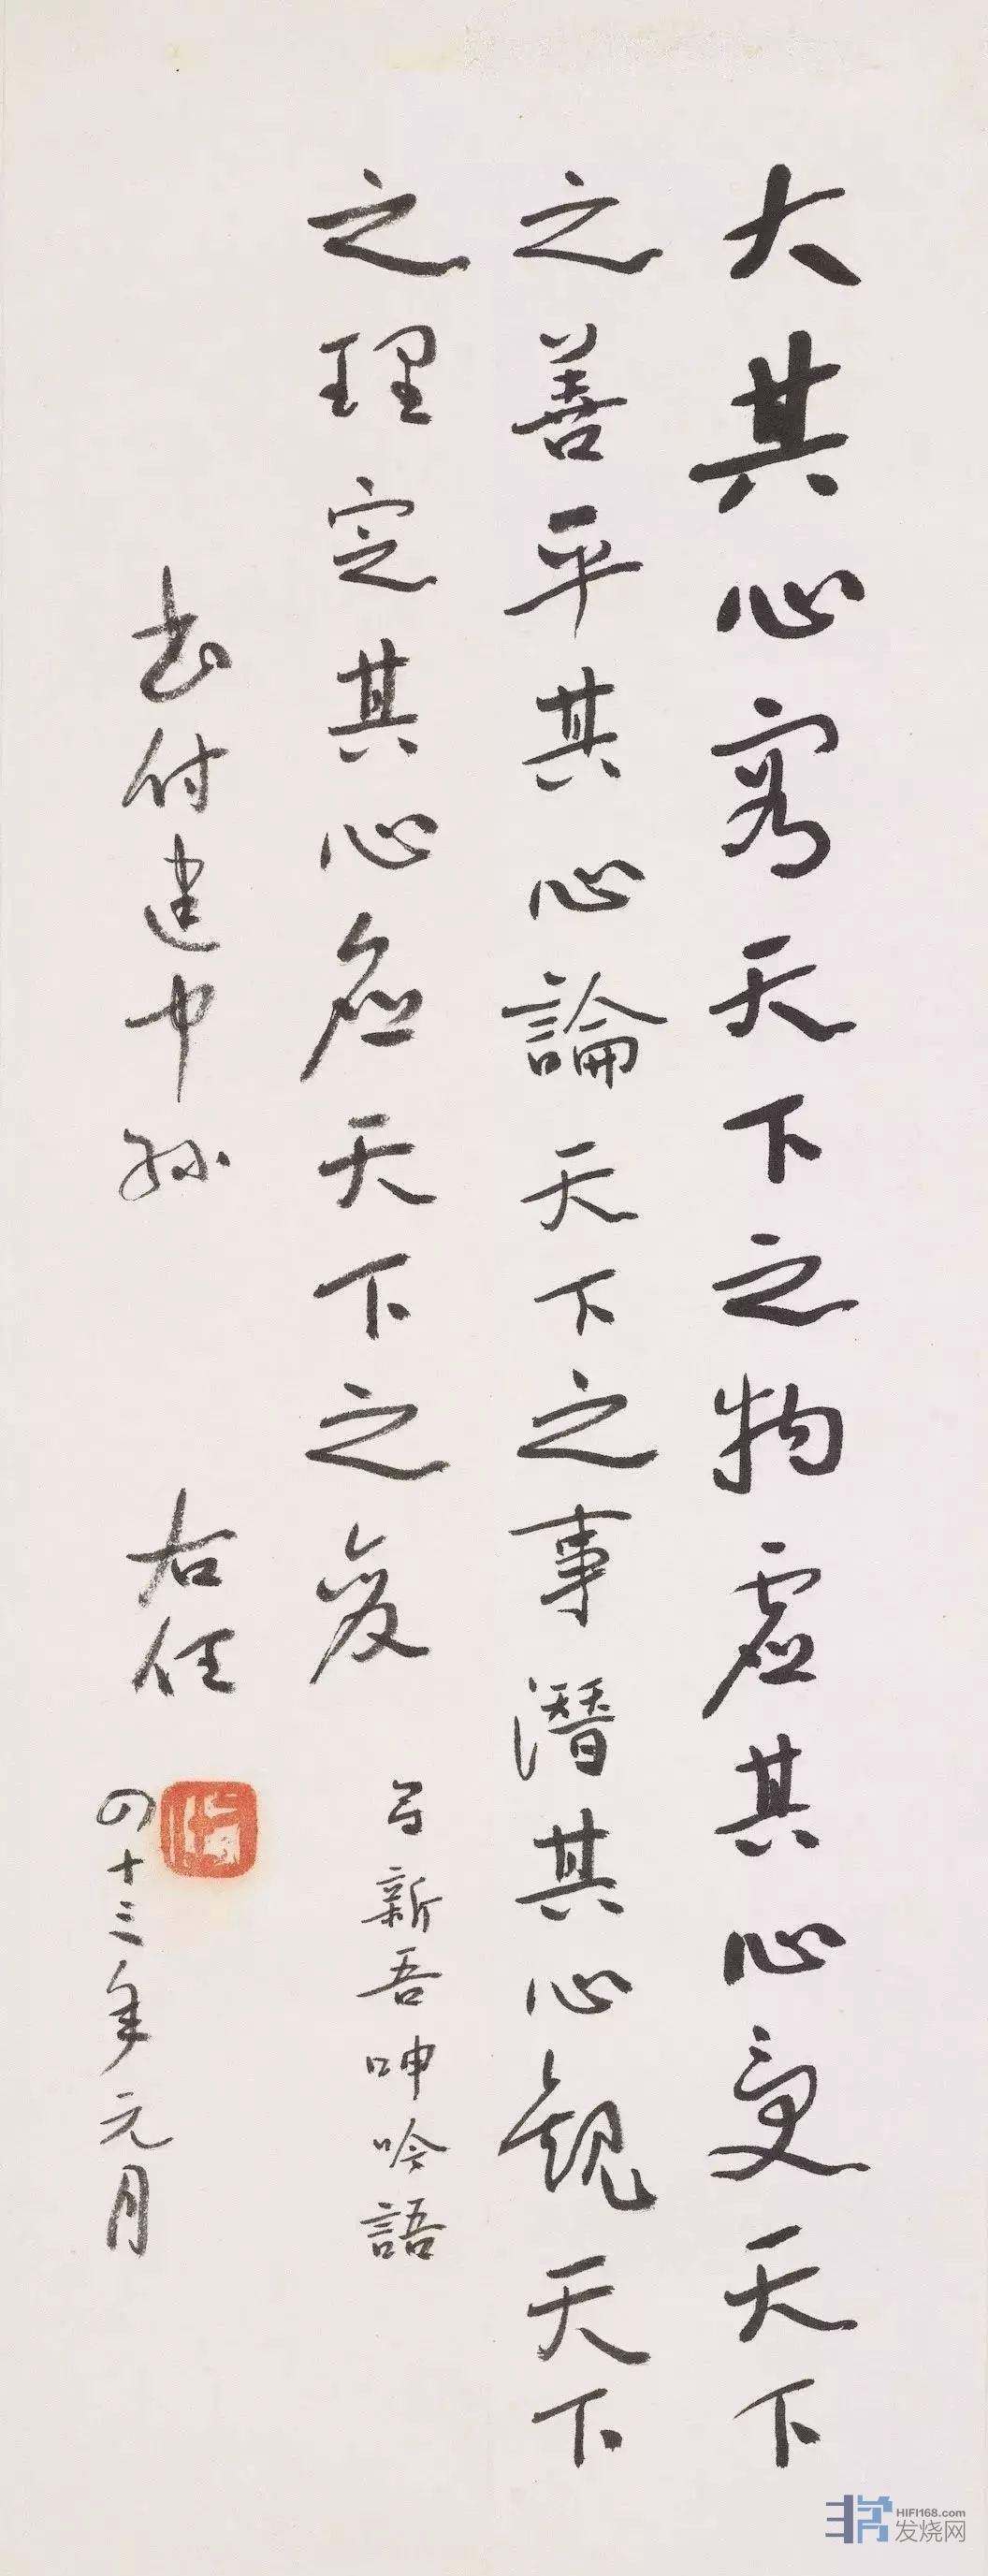 大其心容天下之物虛其心受天下
之善平其心論天下之事潛其心觀天下
之理定其心應天下之變
呂新吾呻吟語
書付建中孫
右任
四十三年元月
HIFI168.com
发烧网